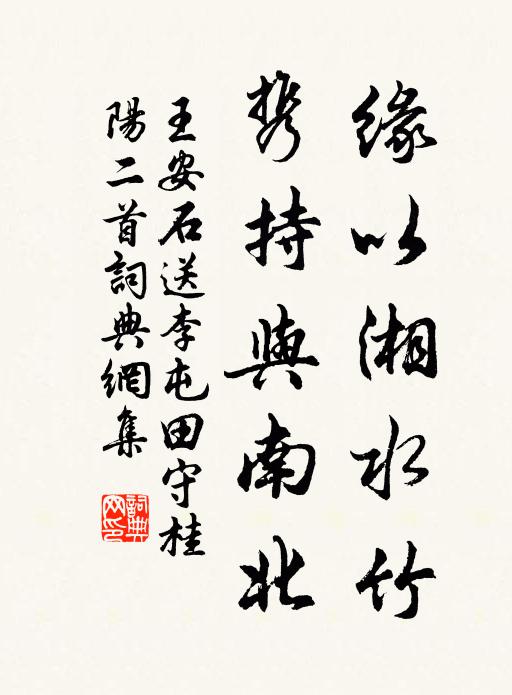 緣以湘水竹
携持與南北
王安石送李屯田守桂
陽二首詞典網集
詞典
网印